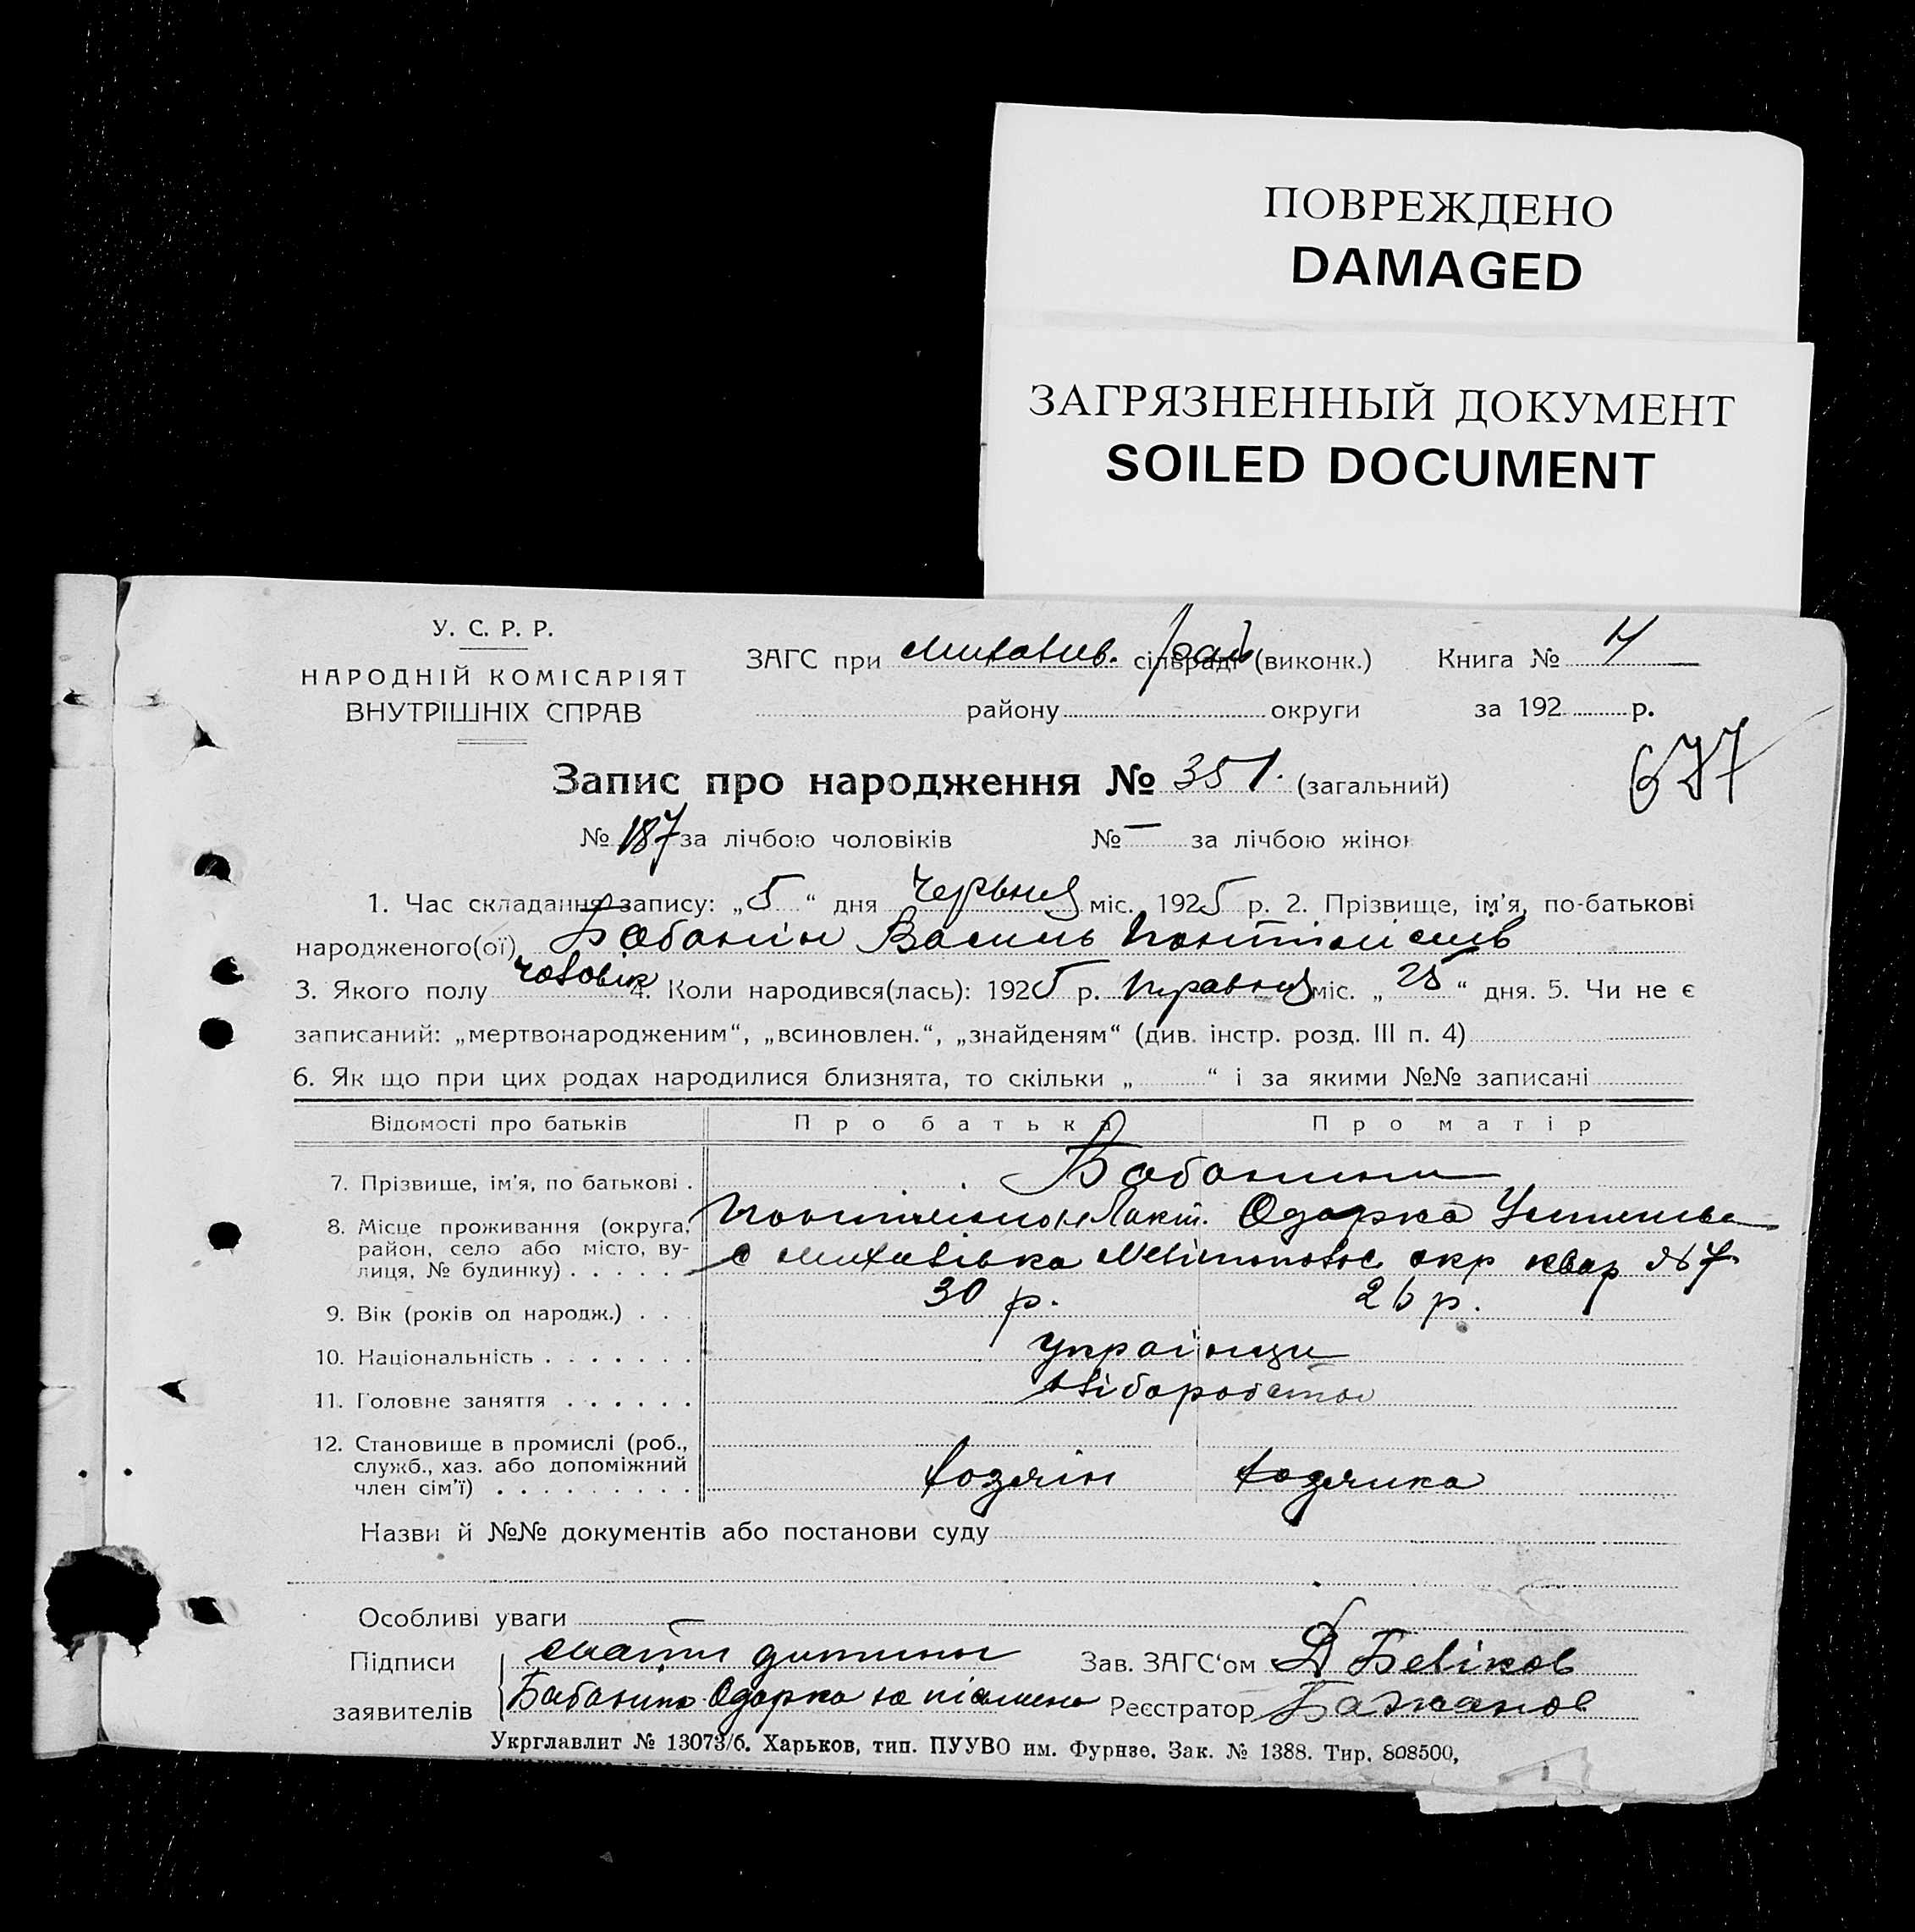 ПОВРЕЖДЕНО
DAMAGED
ЗАГРЯЗНЕННЫЙ ДОКУМЕНТ
SOILED DOCUMENT
У. С. Р. Р.
НАРОДНІЙ КОМІСАРІЯТ
ВНУТРІШНІХ СПРАВ
ЗАГС при Михайлів. сільраді (виконк.) Книга №
району округи за 192 р.
677
Запис про народження № 351. (загальний)
№ 187 за лічбою чоловіків № — за лічбою жінок
1. Час складання запису: „5“ дня червня міс. 1925 р. 2. Прізвище, ім'я, по-батькові
народженого(ої) Бабанін Василь
3. Якого полу чоловік 4. Коли народився(лась): 1925 р. травня міс. „25“ дня. 5. Чи не є
записаний: „мертвонародженим“, „всиновлен.“, „знайденям“ (див. інстр. розд. III п. 4)
6. Як що при цих родах народилися близнята, то скільки „ “ і за якими №№ записані
Відомості про батьків Про батька Про матір
7. Прізвище, ім'я, по батькові . Бабанини
Одарка
8. Місце проживання (округа, район, село або місто, вулиця, № будинку) . . . . . с Михайлівка Мелітопольс окр квар № 7
9. Вік (років од народж.) . . . 30 р. 26 р.
10. Національність . . . . . . . українци
11. Головне заняття . . . . . . хліборобство
12. Становище в промислі (роб.,
служб., хаз. або допоміжний
член сім'ї) . . . . . . . . . хозяін хозяика
Назви й №№ документів або постанови суду
Особливі уваги
Підписи мати дитини Зав. ЗАГС'ом Д Беліков
заявителів Бабанина Одарка не písьмена Реєстратор Бажанов
Укрглавлит № 13073/б. Харьков, тип. ПУУВО им. Фрунзе. Зак. № 1388. Тир. 808500,